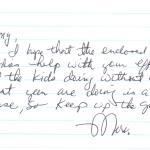 my,
I hope that the enclosed
help with your eff
the kids doing without
t you are doing is a
se, so keep up the go